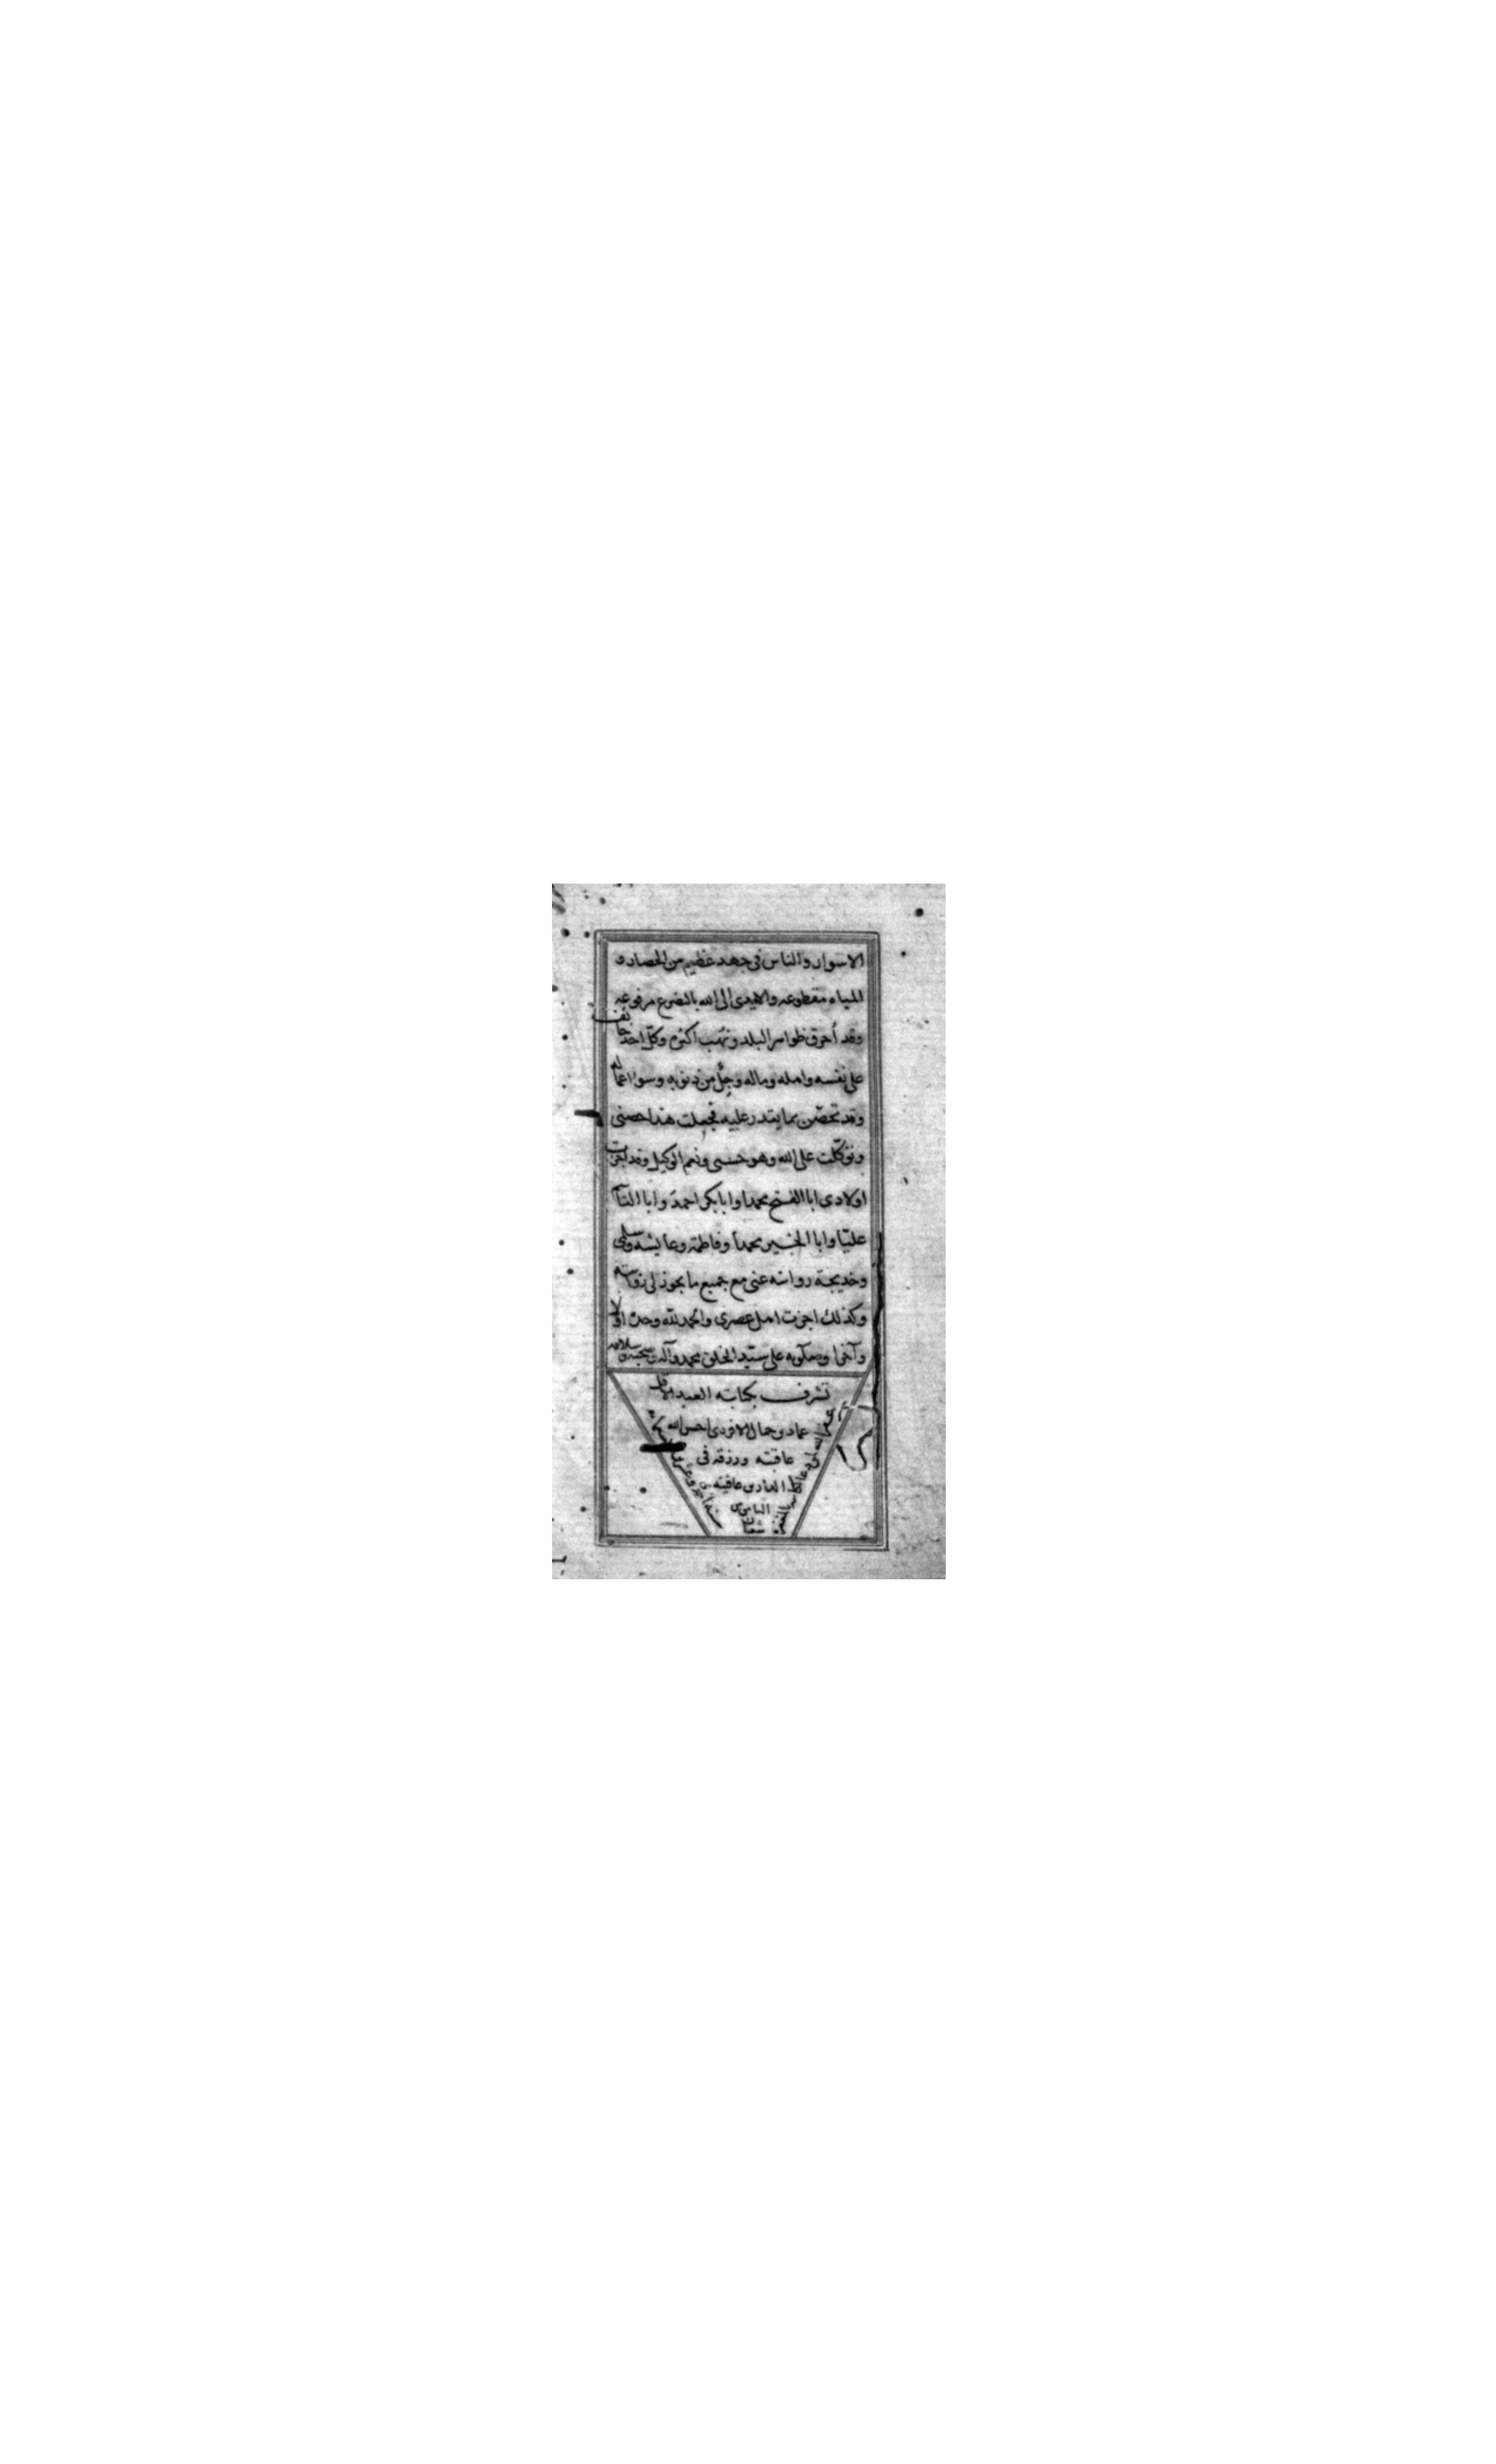 الاسوار والناس فى جهد عظيم من الحصار و
المياه مقطوعه والايدى الى الله بالتضرع مرفوعه
وقد أحرق ظواهر البلد ونهب اكثره وكل احد خائف
على نفسه واهله وماله وجل من ذنوبه وسوء اعماله
وقد تحصّن بما يقدر عليه فجعلت هذا حصنى
وتوكّلت على الله وهو حسبى ونعم الوكيل وقد اجزت
اولادى ابا الفتح محمدا وابا بكر احمد وابا القاسم
عليّا وابا الخير محمدا وفاطمة وعايشه وسلمى
وخديجة روايته عنى مع جميع ما يجوز لى روايته
وكذلك اجزت اهل عصرى والحمد لله وحده اولا
وآخرا وصلوته على سيّد الخلق محمد وآله وصحبه وسلامه
تشرف بكتابته العبد الاقل
عماد احسن الله
عاقبته ورزقه فى
الدارين عافيته